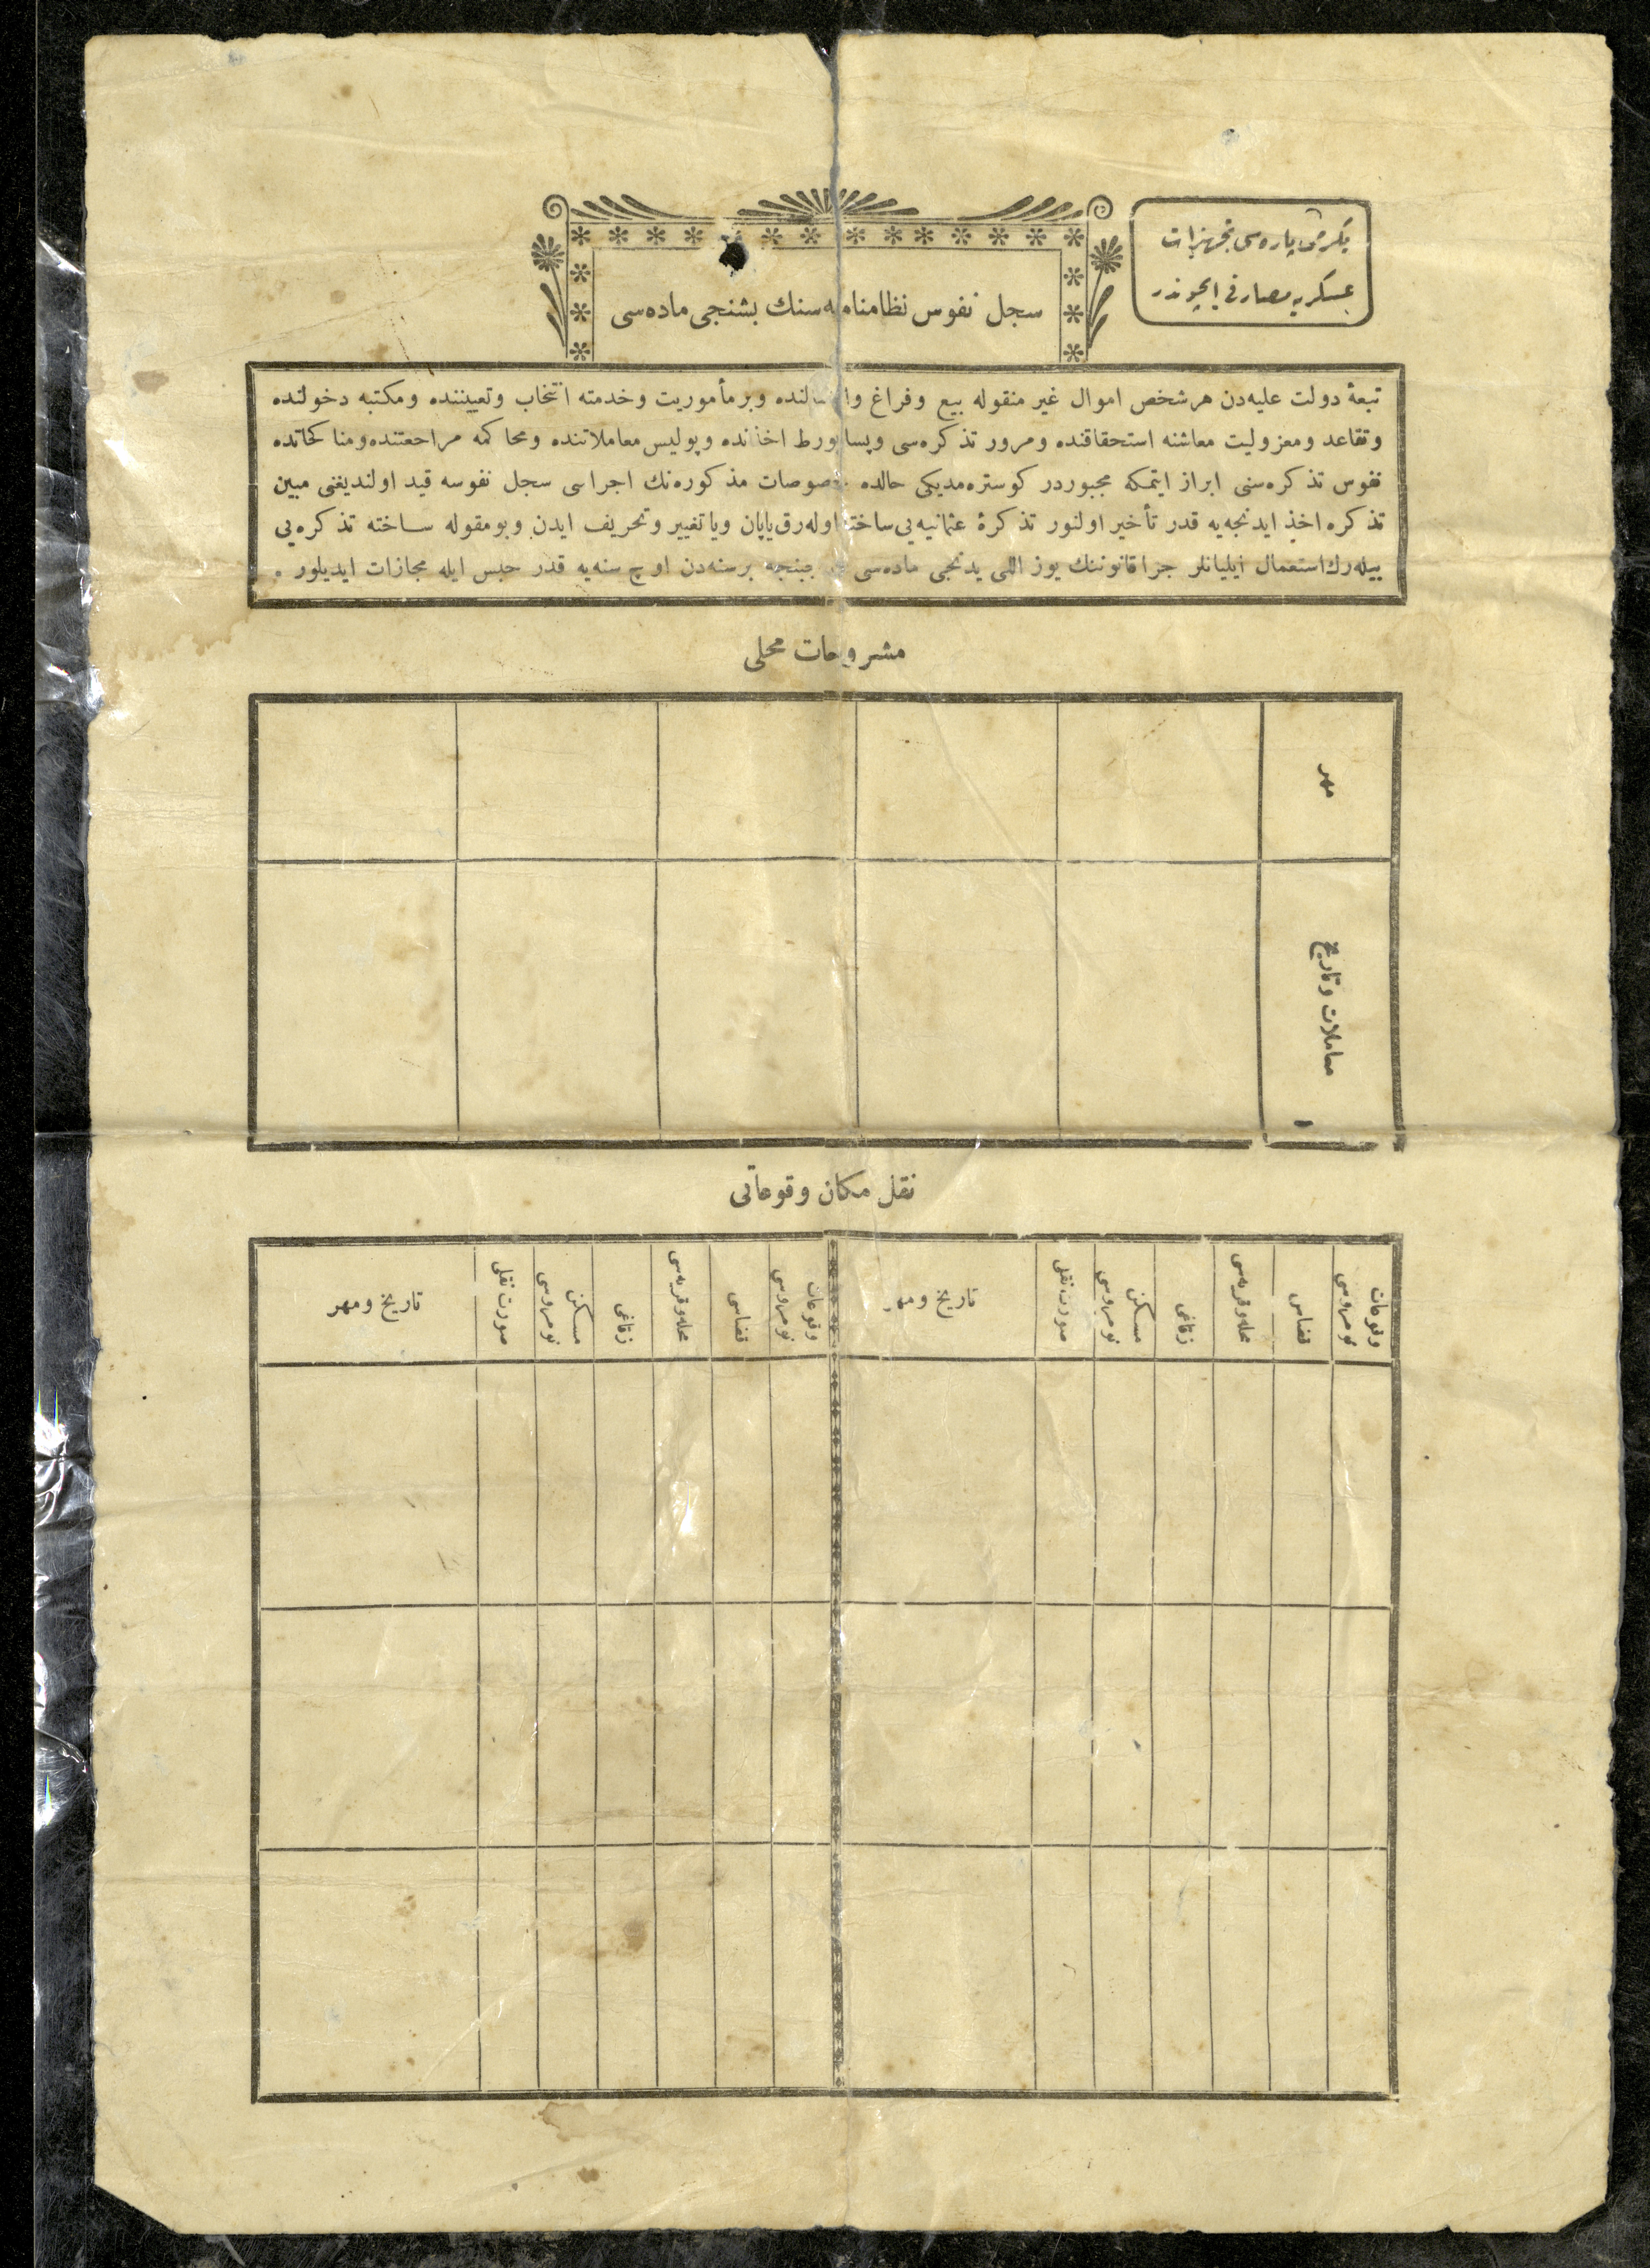 یکرمی پاره‌سی تجهیزات
عسکریه مصارفی ایچوندر
سجل نفوس نظامنامه‌سنك بشنجی ماده‌سی
تبعهٔ دولت علیه‌دن هر شخص اموال غیر منقوله بیع و فراغ و لنده و بر مأموریت و خدمته انتخاب و تعییننده و مکتبه دخولنده
و تقاعد و معزولیت معاشنه استحقاقنده و مرور تذکره‌سی و پساپورط اخذنده و پولیس معاملاتنده و محاکمه مراجعتنده و مناکحاتده
نفوس تذکره‌سنی ابراز ایتمکه مجبوردر کوستره‌مدیکی حالده خصوصات مذکوره‌نك اجراسی سجل نفوسه قید اولندیغی مبین
تذکره اخذ ایدنجه‌یه قدر تأخیر اولنور تذکرهٔ عثمانیه‌یی ساخته اوله‌رق یاپان ویا تغییر و تحریف ایدن و بو مقوله ساخته تذکره‌یی
بیله‌رك استعمال ایلیانلر جزا قانوننك یوز اللی یدنجی ماده‌سی جبنجه بر سنه‌دن اوچ سنه‌یه قدر حبس ایله مجازات ایدیلور .
مشروحات محلی
مهر
معاملات و تاریخ
نقل مکان وقوعاتی
وقوعات نومروسی
قضاسی
محله و قریه‌سی
زقاغی
مسکن نومروسی
صورت نقلی
تاریخ و مهر
وقوعات نومروسی
قضاسی
محله و قریه‌سی
زقاغی
مسکن نومروسی
صورت نقلی
تاریخ و مهر